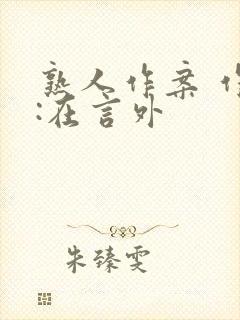 熟人作案 作
:在言外
朱臻雯